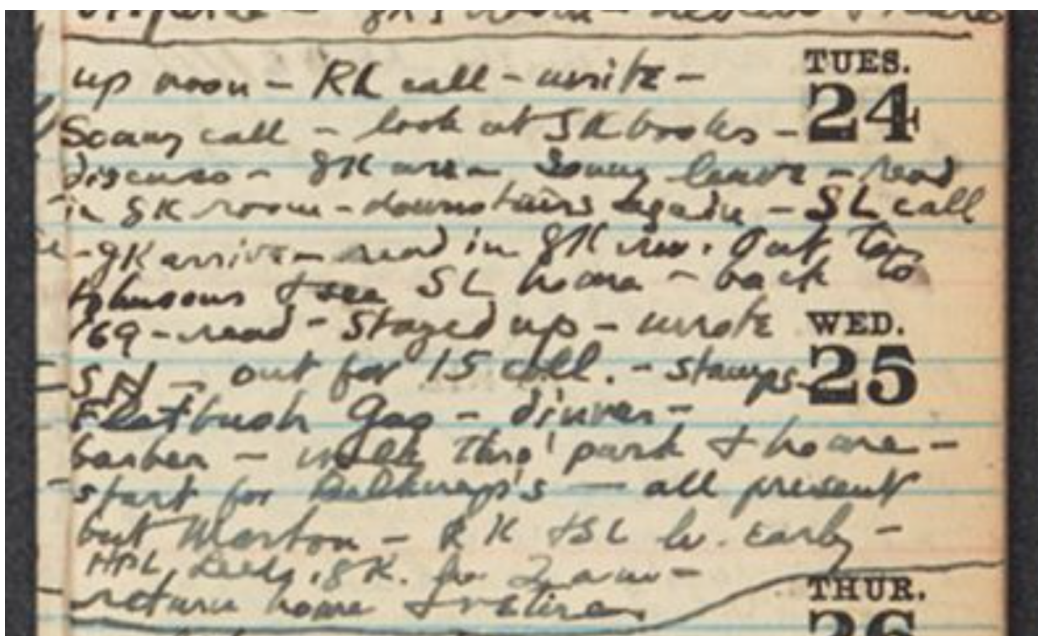 up noon – RK call – write –
TUES.
24
Sonny call – look at GK books –
discuss – GK Sonny leave – read
in GK room – downstairs again – SL call
– GK arrive – read in GK rm. Out to
Johnsons & see SL home – back to
169 – read – Stayed up – wrote
WED.
25
SH – out for 15 call. – stamps –
Flatbush Gas – dinner –
barber – walk thro' park & home –
start for Belknap's — all present
but Morton – RK & SL lv. early –
HPL, Leeds, GK. lv 2 a m –
return home & retire.
THUR.
26